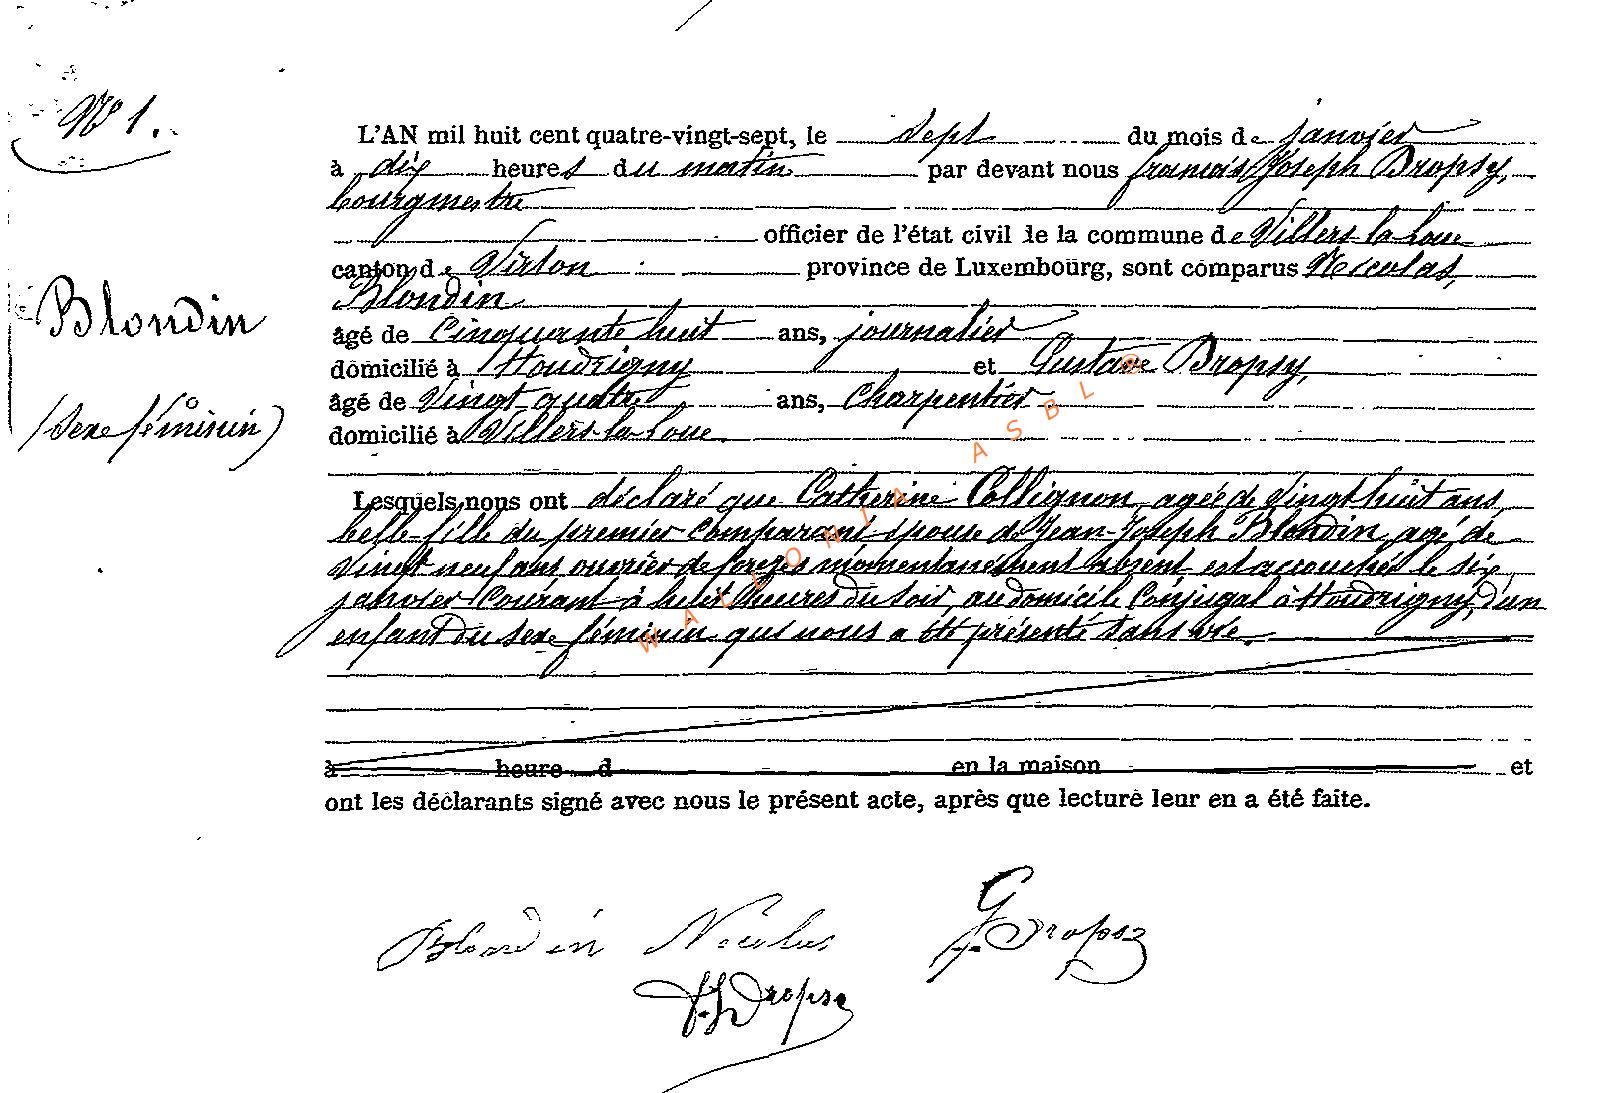 N° 1.
Blondin
(Sexe féminin)
L'AN mil huit cent quatre-vingt-sept, le sept du mois de janvier
à dix heures du matin par devant nous françois Joseph Dropsy,
bourgmestre
officier de l'état civil de la commune de Villers-la-Loue
canton de Virton province de Luxembourg, sont comparus Nicolas
Blondin
âgé de cinquante huit ans, journalier
domicilié à Houdrigny et Gustave Dropsy,
âgé de Vingt quatre ans, Charpentier
domicilié à Villers-la-Loue.
Lesquels nous ont déclaré que Catherine Collignon, agée de Vingt huit ans,
belle-fille du premier comparant épouse de Jean-Joseph Blondin, agé de
vingt neuf ans ouvrier de forges momentanément absent est accouchée le six
janvier courant à huit heures du soir, au domicile conjugal à Houdrigny, d'un
enfant du sexe féminin qui nous a été présenté sans vie.
à heure d en la maison et
ont les déclarants signé avec nous le présent acte, après que lecture leur en a été faite.
Blondin Nicolas G. Dropsy
f. J. Dropsy
WALLONIA ASBL ©